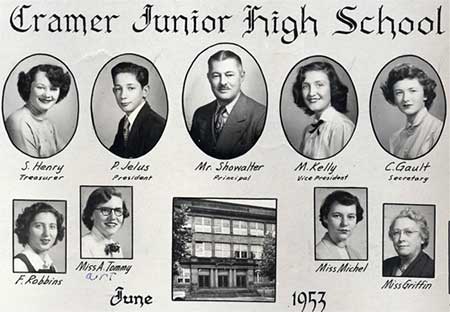 Cramer Junior High School
S. Henry P. Jelus Mr. Showalter M. Kelly C. Gault
Treasurer President Principal Vice President Secretary
F. Robbins Miss A. Tommy Miss Michel Miss Griffin
art
June 1953